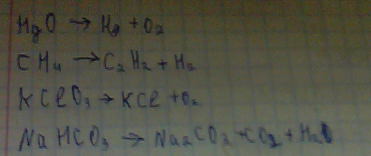 HgO → Hg + O₂
CH₄ → C₂H₂ + H₂
KClO₃ → KCl + O₂
NaHCO₃ → Na₂CO₃ + CO₂ + H₂O